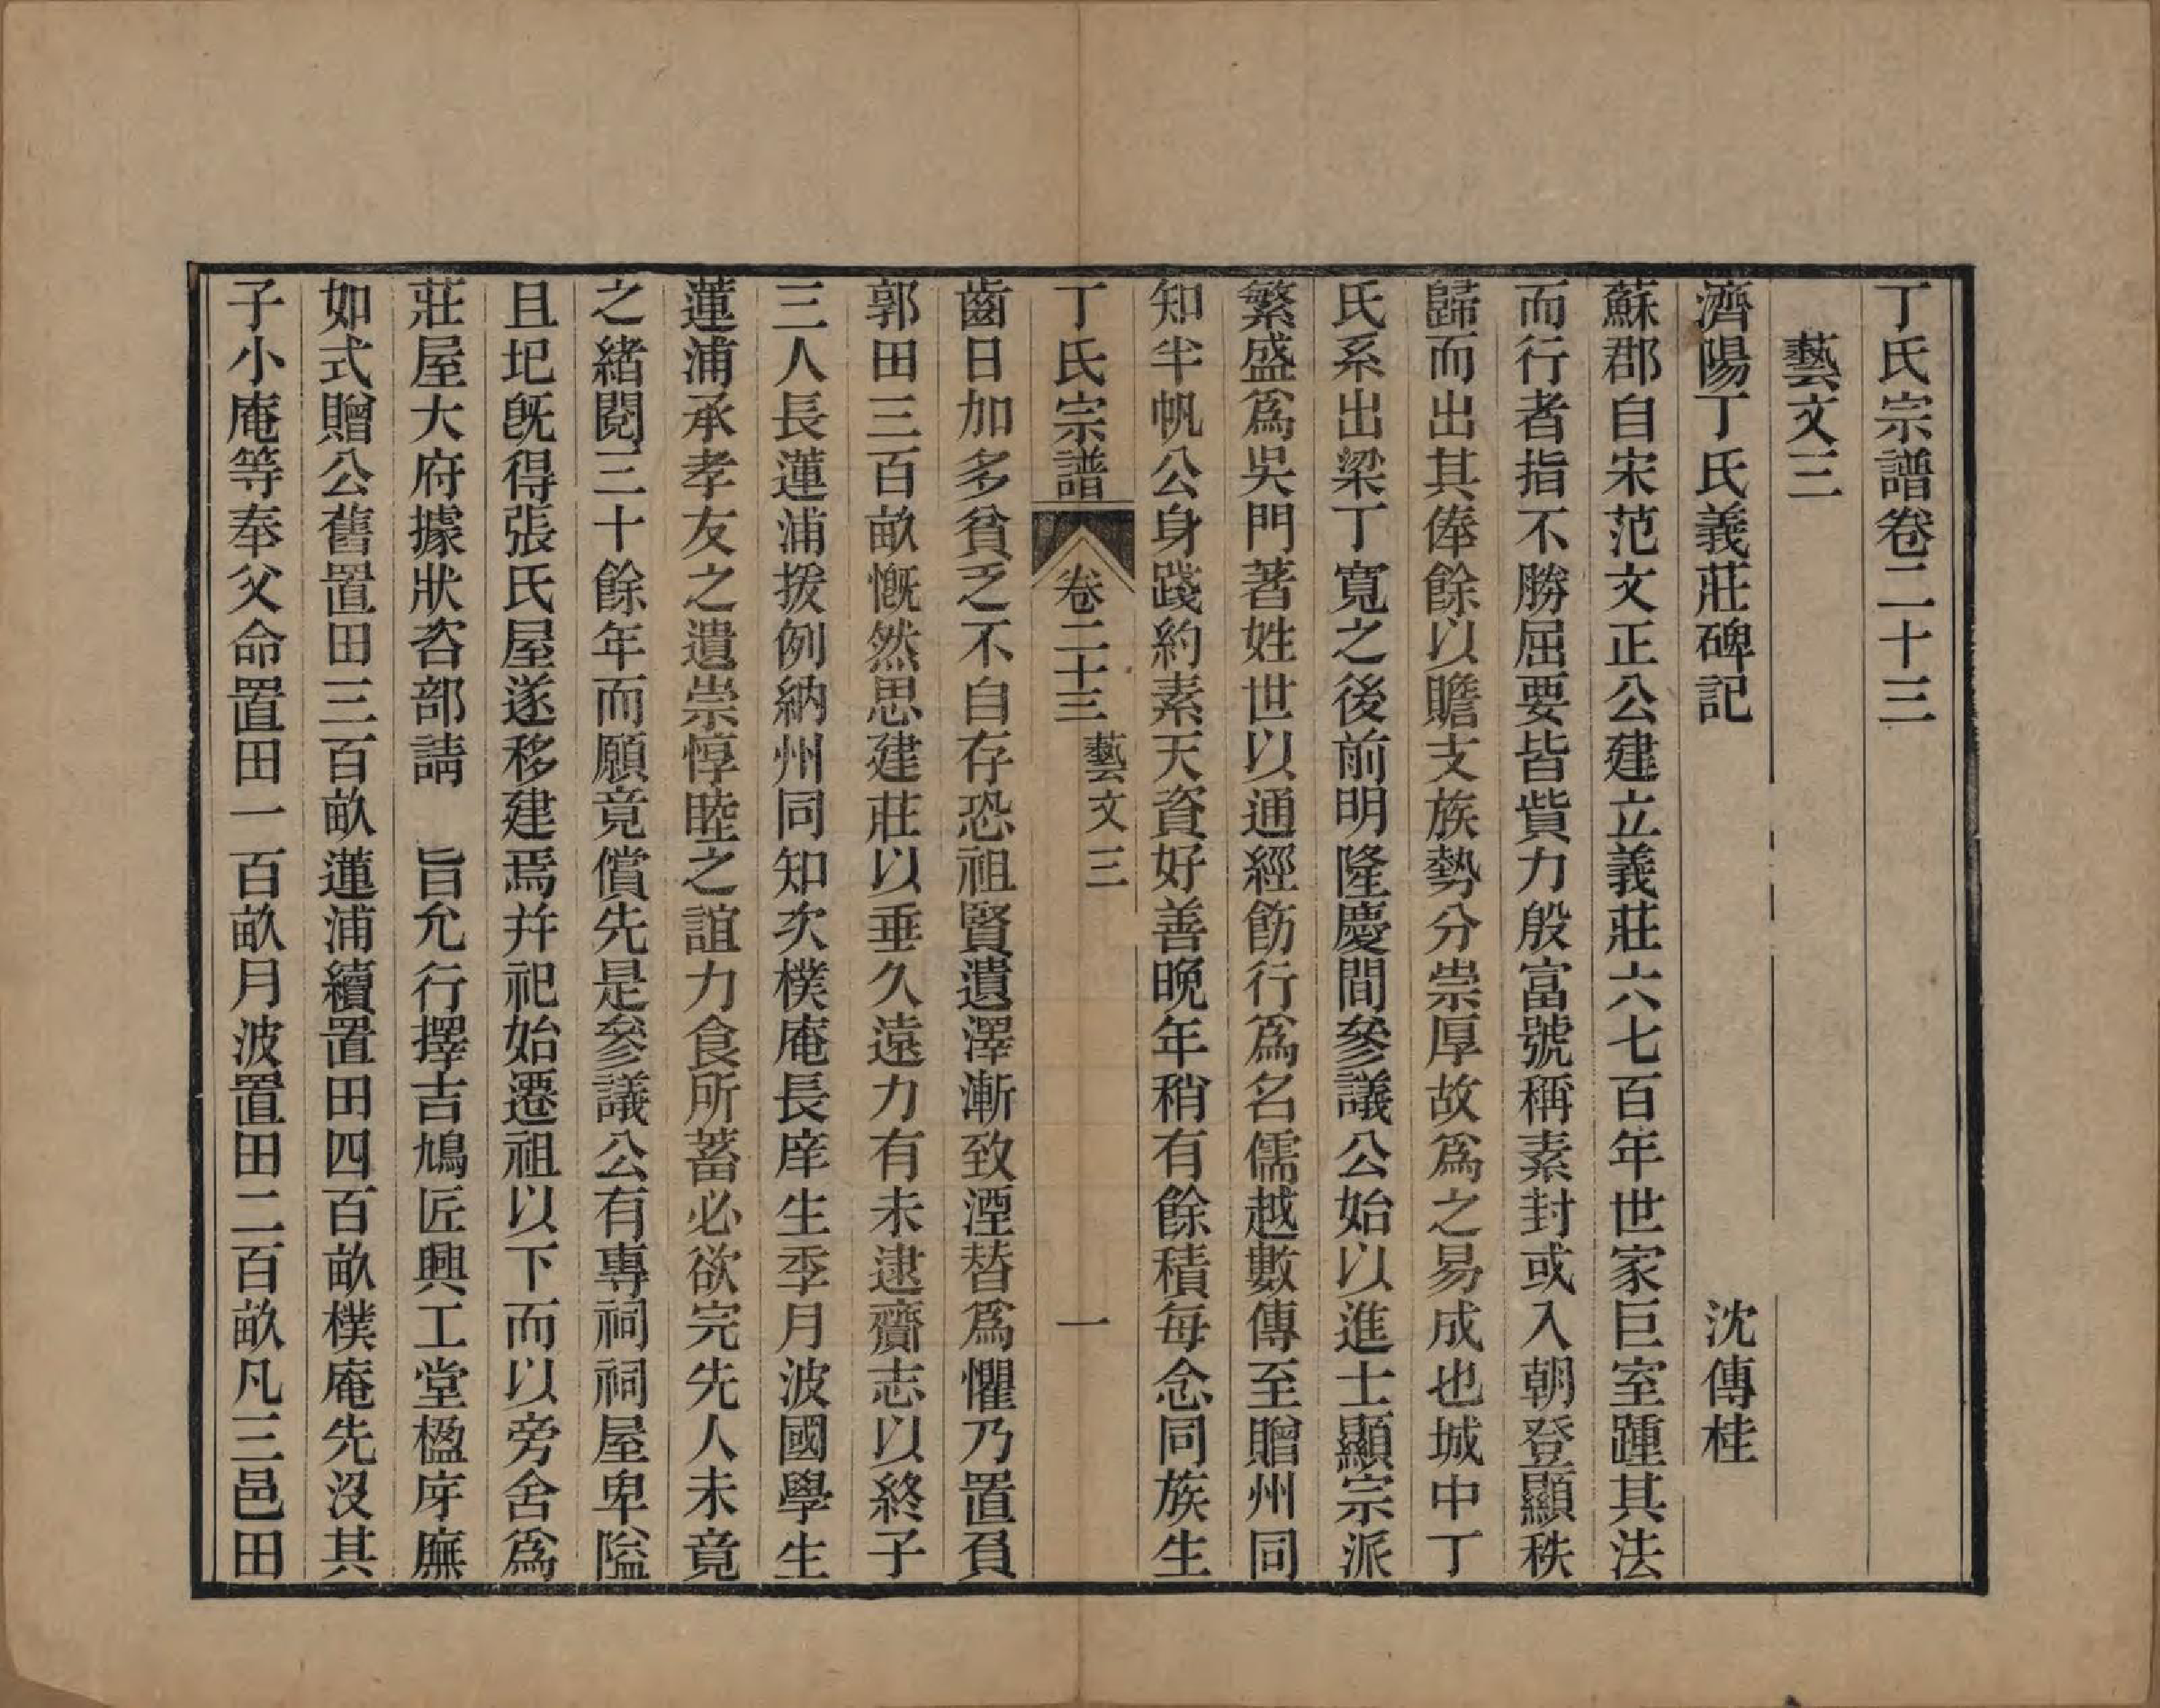 丁氏宗譜卷二十三
藝文三
濟陽丁氏義莊碑記　沈傳桂
蘇郡自宋范文正公建立義莊六七百年世家巨室踵其法
而行者指不勝屈要皆貲力殷富號稱素封或入朝登顯秩
歸而出其俸餘以贍支族勢分崇厚故爲之易成也城中丁
氏系出梁丁寬之後前明隆慶間參議公始以進士顯宗派
繁盛爲吳門著姓世以通經飭行爲名儒越數傳至贈州同
知半帆公身踐約素天資好善晚年稍有餘積每念同族生
丁氏宗譜　卷二十三　藝文三　一
齒日加多貧乏不自存恐祖賢遺澤漸致湮替爲懼乃置負
郭田三百畝慨然思建莊以垂久遠力有未逮齎志以終子
三人長蓮浦援例納州同知次樸庵長庠生季月波國學生
蓮浦承孝友之遺崇惇睦之誼力食所蓄必欲完先人未竟
之緒閱三十餘年而願竟償先是參議公有專祠祠屋卑隘
且圮旣得張氏屋遂移建焉并祀始遷祖以下而以旁舍爲
莊屋大府據狀咨部請　旨允行擇吉鳩匠興工堂楹序廡
如式贈公舊置田三百畝蓮浦續置田四百畝樸庵先沒其
子小庵等奉父命置田一百畝月波置田二百畝凡三邑田